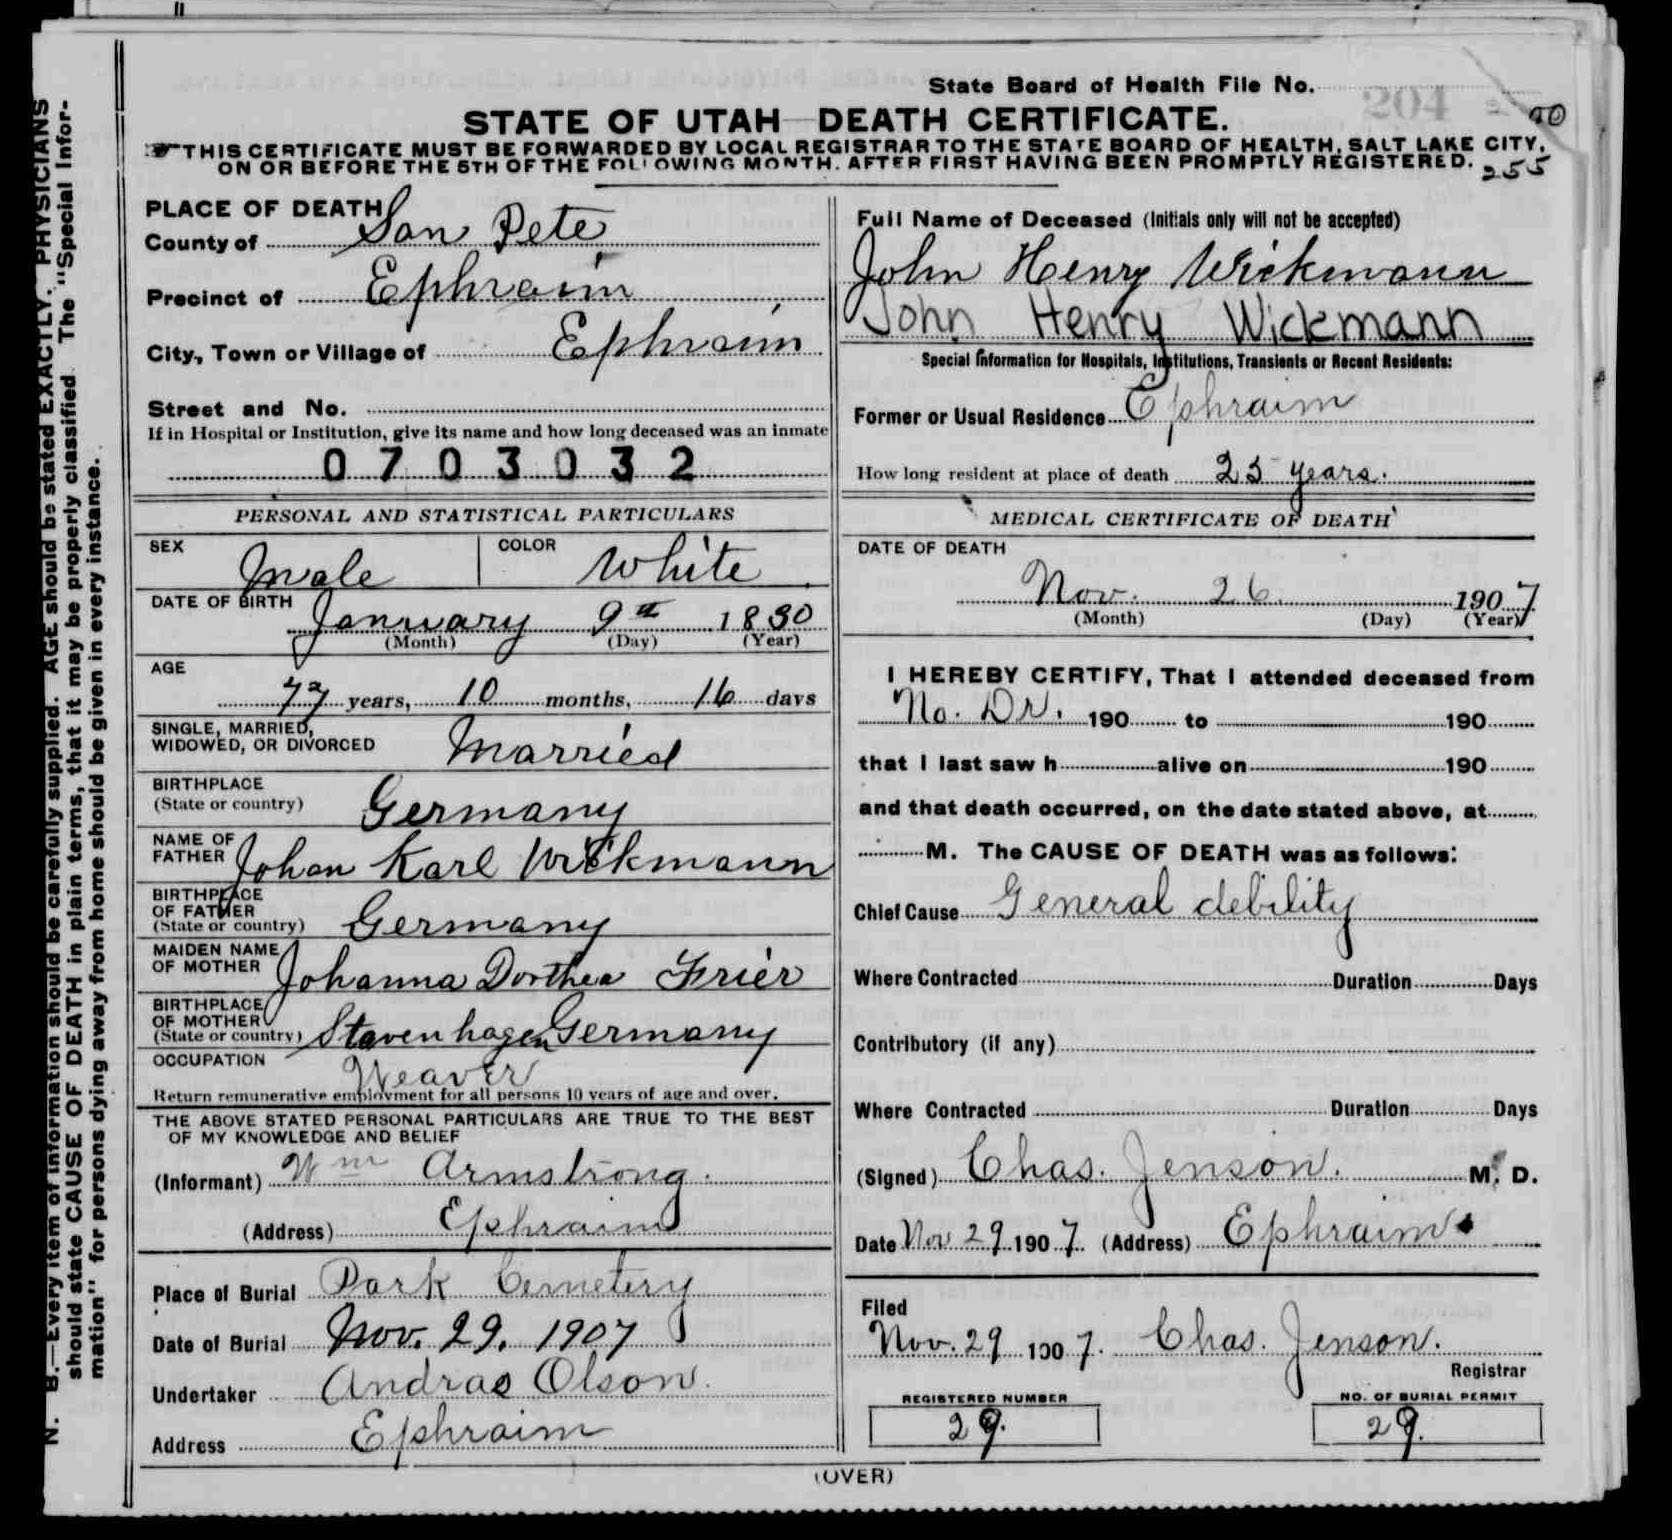 State Board of Health File No. 204
90
STATE OF UTAH—DEATH CERTIFICATE.
THIS CERTIFICATE MUST BE FORWARDED BY LOCAL REGISTRAR TO THE STATE BOARD OF HEALTH, SALT LAKE CITY,
ON OR BEFORE THE 5TH OF THE FOLLOWING MONTH, AFTER FIRST HAVING BEEN PROMPTLY REGISTERED.
255
PLACE OF DEATH
County of San Pete
Precinct of Ephraim
City, Town or Village of Ephraim
Street and No.
If in Hospital or Institution, give its name and how long deceased was an inmate
0703032
PERSONAL AND STATISTICAL PARTICULARS
SEX Male COLOR White
DATE OF BIRTH
January 9th 1830
(Month) (Day) (Year)
AGE
77 years, 10 months, 16 days
SINGLE, MARRIED,
WIDOWED, OR DIVORCED Married
BIRTHPLACE
(State or country) Germany
NAME OF
FATHER Johan Karl Wickmann
BIRTHPLACE
OF FATHER
(State or country) Germany
MAIDEN NAME
OF MOTHER Johanna Dorthea Frier
BIRTHPLACE
OF MOTHER
(State or country) Stavenhagen Germany
OCCUPATION
Weaver
Return remunerative employment for all persons 10 years of age and over.
THE ABOVE STATED PERSONAL PARTICULARS ARE TRUE TO THE BEST
OF MY KNOWLEDGE AND BELIEF
(Informant) Wm Armstrong.
(Address) Ephraim
Place of Burial Park Cemetery
Date of Burial Nov. 29. 1907
Undertaker Andras Olson.
Address Ephraim
Full Name of Deceased (Initials only will not be accepted)
John Henry Wickmann
John Henry Wickmann
Special Information for Hospitals, Institutions, Transients or Recent Residents:
Former or Usual Residence Ephraim
How long resident at place of death 25 years.
MEDICAL CERTIFICATE OF DEATH
DATE OF DEATH
Nov. 26 1907
(Month) (Day) (Year)
I HEREBY CERTIFY, That I attended deceased from
No. Dr. 190 to 190
that I last saw h alive on 190
and that death occurred, on the date stated above, at
M. The CAUSE OF DEATH was as follows:
Chief Cause General debility
Where Contracted Duration Days
Contributory (if any)
Where Contracted Duration Days
(Signed) Chas. Jenson. M. D.
Date Nov 29 1907. (Address) Ephraim
Filed
Nov. 29 1907. Chas. Jenson.
Registrar
REGISTERED NUMBER
29.
NO. OF BURIAL PERMIT
29.
(OVER)
N. B.—Every item of information should be carefully supplied. AGE should be stated EXACTLY. PHYSICIANS
should state CAUSE OF DEATH in plain terms, that it may be properly classified. The "Special Infor-
mation" for persons dying away from home should be given in every instance.